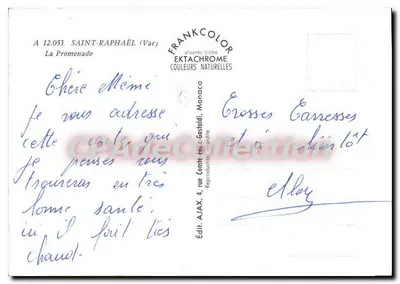 A 12.053 SAINT-RAPHAËL (Var)
La Promenade
Chère Mémé
je vous adresse
cette carte qui
je penses vous
trouveras en très
bonne santé.
ici il fait très
chaud.
FRANKCOLOR
d'après cliché
EKTACHROME
COULEURS NATURELLES
Édit. AJAX, 4, rue Comte Gastaldi, Monaco
Reproduction interdite
Grosses Carresses
et à bientôt